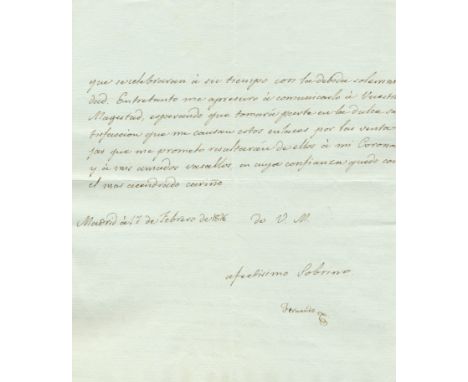 que se celebraran à su tiempo con la debida solemni
dad. Entretanto me apresuro à comunicarlo à Vuestra
Magestad, esperando que tomará parte en la dulce sa
tisfaccion que me causan estos enlaces por las venta
jas que me prometo resultaran de ellos à mi Corona
y à mis amados vasallos, en cuya confianza quedo con
el mas acendrado cariño
Madrid à 17 de Febrero de 1816 de V. M.
afectisimo Sobrino
Fernando